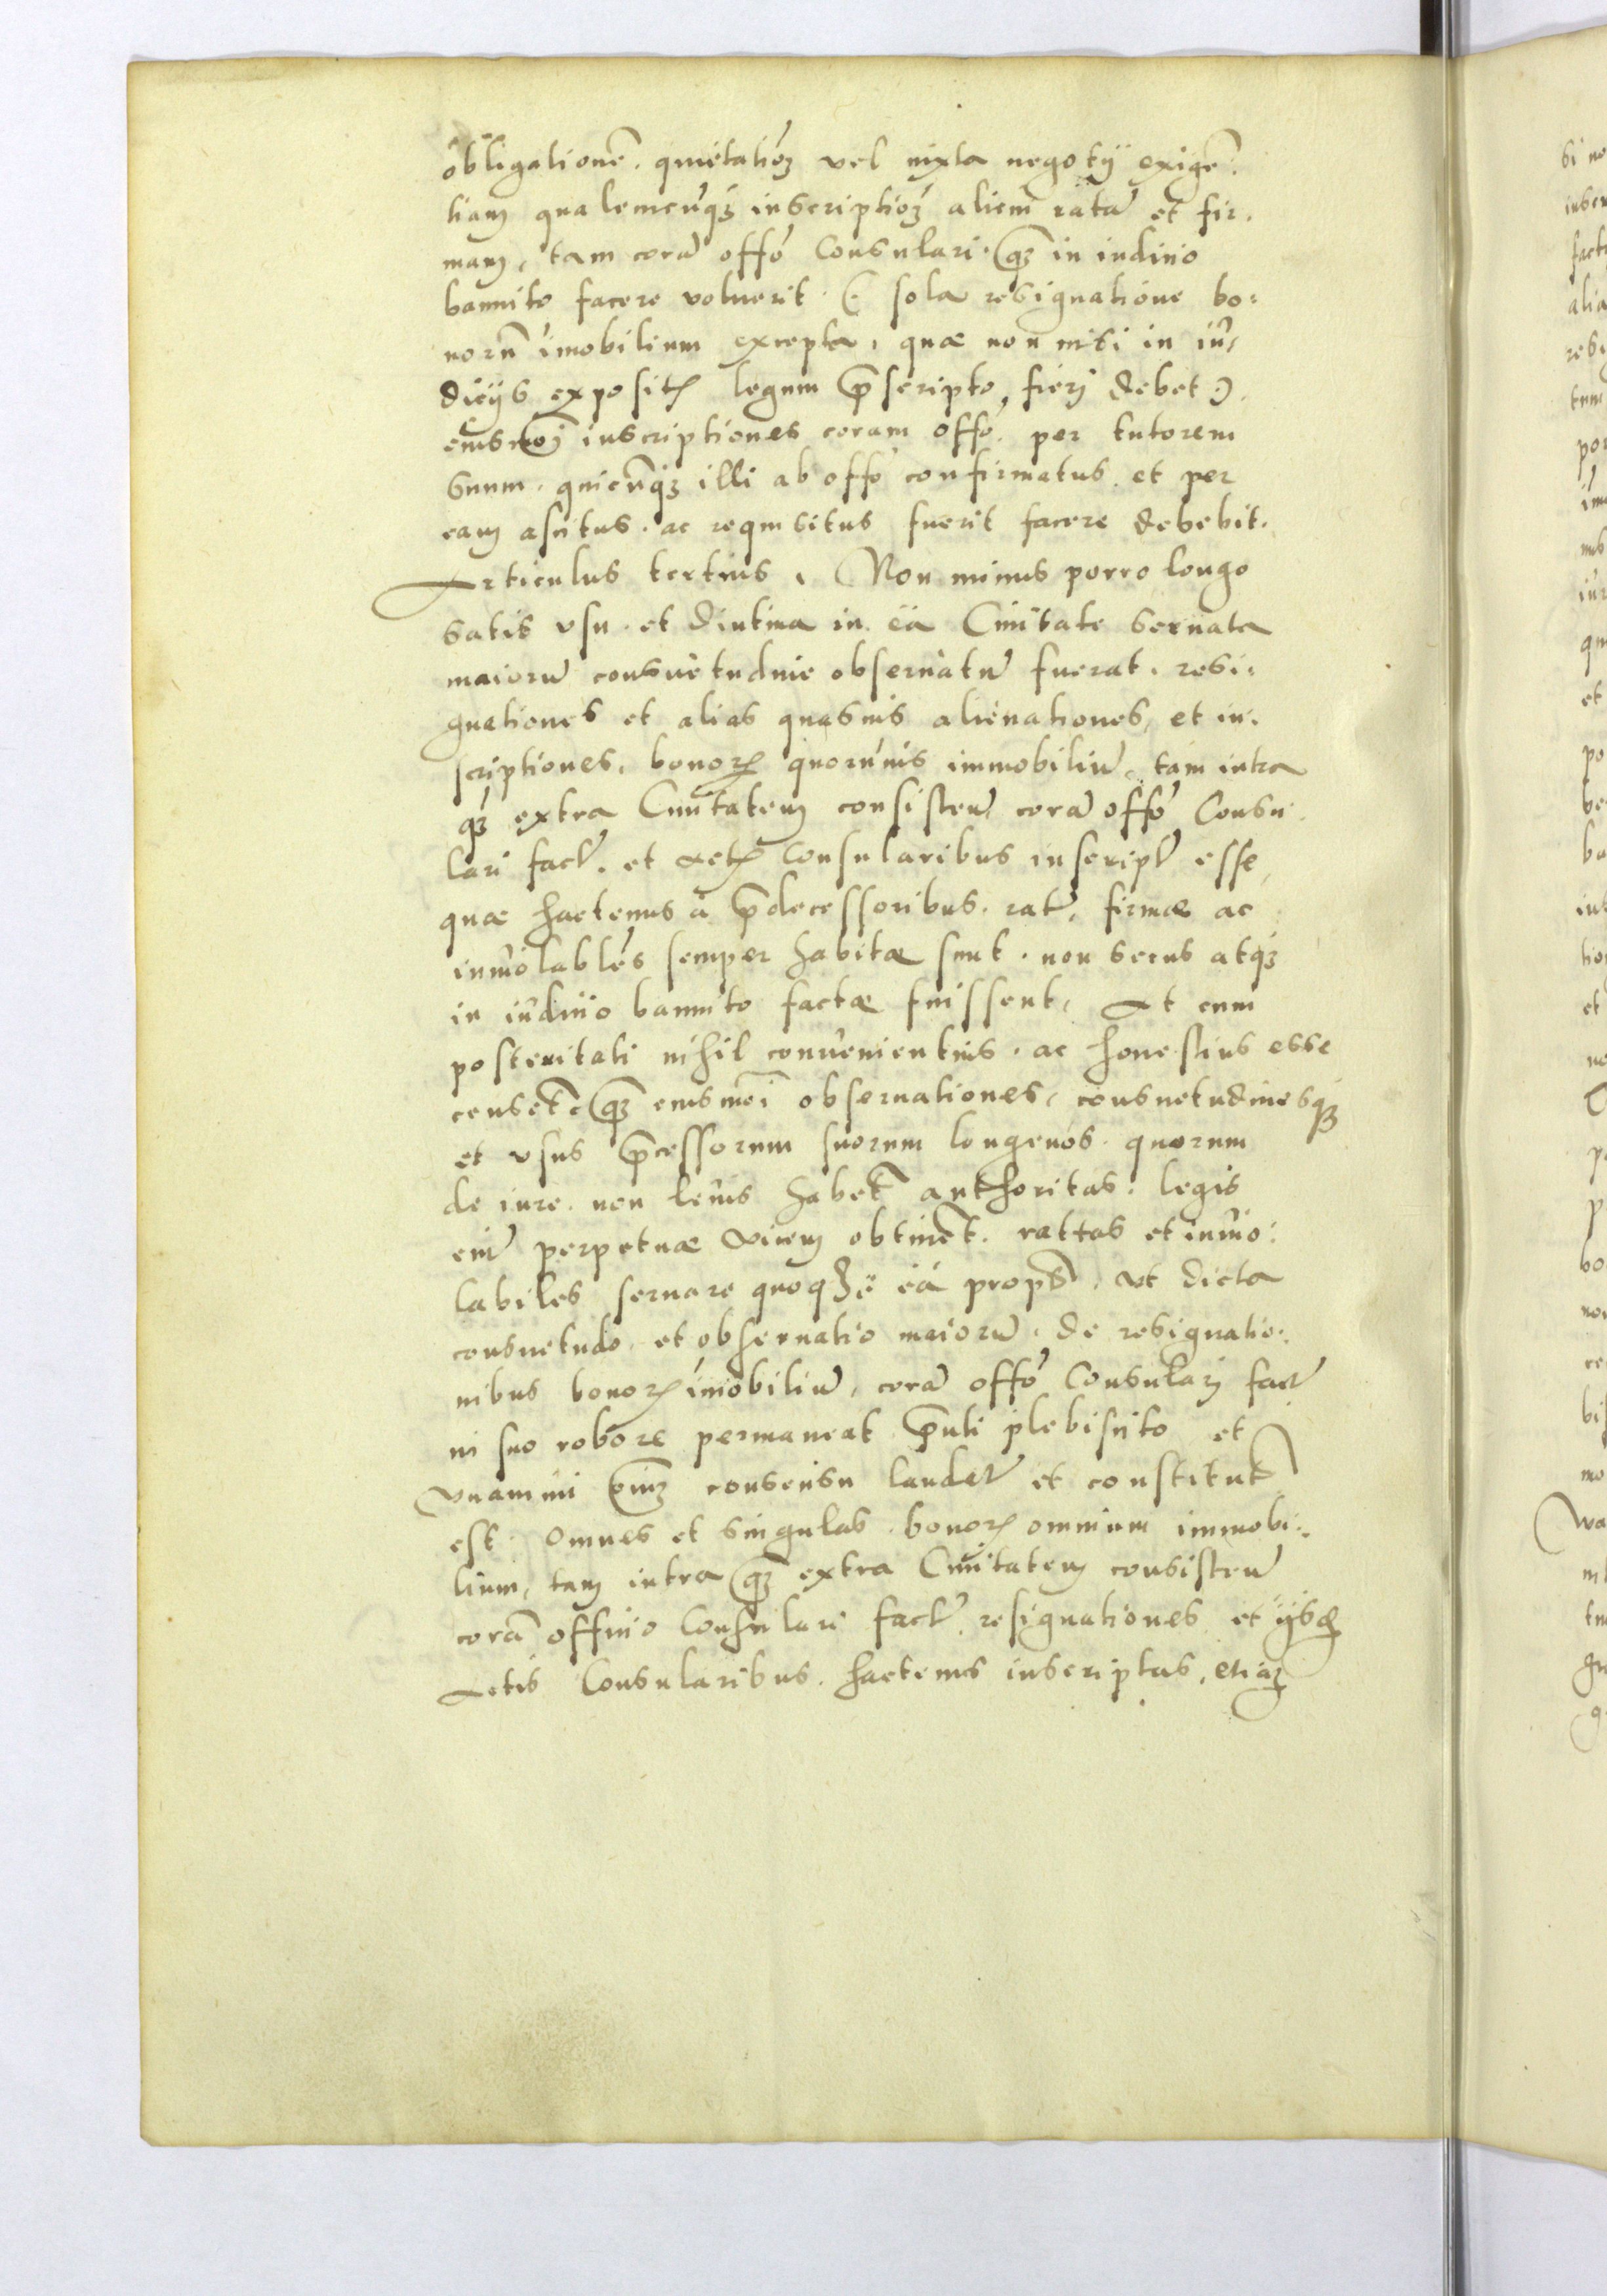 obligationẽ. quietatioꝫ vel iuxta negotÿ exigẽ:
tiam qualemcũqꝫ inscriptioꝫ alicui ratã et fir:
mam, tam corã offõ Consulari qꝫ in iudicio
bannito facere voluerit. (: sola resignatione bo:
norũ im̃obilium excepta, quæ non nisi in iu,
dicÿs exposit̃ legum p̃scripto, fieri debet :)
eiusmõi inscriptiones coram offõ. per tutorem
suum. quicũqꝫ illi ab offõ confirmatus. et per
eam ascitus. ac requisitus fuerit facere debebit.
Articulus tertius. Non minus porro longo
satis vsu. et diutina in eã Ciuitate seruata
maiorũ consuetudine obseruatũ fuerat. resi:
gnationes et alias quasuis alienationes, et in:
scriptiones, bonoꝝ quorumuis immobiliũ, tam intra
qꝫ extra Ciuitatem consisteñ corã offõ Consu:
lari fact̃. et Act̃ Consularibus inscript̃ esse,
quæ hactenus à p̃decessoribus. rat̃, firmæ ac
inuiolabiles semper habitæ sunt. non secus atqꝫ
in iudicio bannito factæ fuissent, At cum
posteritati nihil conuenientius. ac honestius esse
censet̃ qꝫ eiusmõi obseruationes, consuetudinesqꝫ
et vsus p̃cessorum suorum longeuos. quorum
de iure. non leuis habet̃ authoritas. legis
enĩ perpetuæ vicem obtinẽt. rattas et inuio:
labiles seruare quoqꝫ ẽ eá propt̃. vt dicta
consuetudo. et obseruatio maiorũ. de resignatio:
nibus bonoꝝ im̃obiliũ, corã offõ Consulari fact̃
in suo robore permaneat p̃uti plebiscito et
vnanimi oĩuꝫ consensu laudat̃ et constitut̃
est. Omnes et singulas. bonoꝝ omnium immobi:
lium, tam intra qꝫ extra Ciuitatem consisteñ
corã officio Consulari fact̃. resignationes et ÿsdẽ
Actis Consularibus. hactenus inscriptas, etiaꝫ